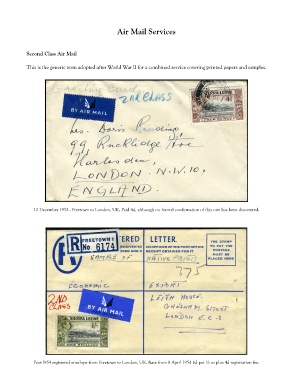 Air Mail Services
Second Class Air Mail
This is the generic term adopted after World War II for a combined service covering printed papers and samples.
Greeting Card
BY AIR MAIL
2ND CLASS
SIERRA LEONE
Les. Doris
99
Harlesden,
LONDON. N.W.10,
ENGLAND.
12 December 1951. Freetown to London, UK. Paid 4d, although no formal confirmation of this rate has been discovered.
R
FREETOWN
No 6174
REGISTERED LETTER.
THE STAMP
TO PAY THE
POSTAGE
MUST BE
PLACED HERE
SAMPLE OF NATIVE PRINT
775
ECONOMIC EXPORT
2ND
CLASS
BY AIR MAIL
SIERRA LEONE
LEITH HOUSE.
GRESHAM STREET
LONDON E.C.2
Post 1954 registered envelope from Freetown to London, UK.